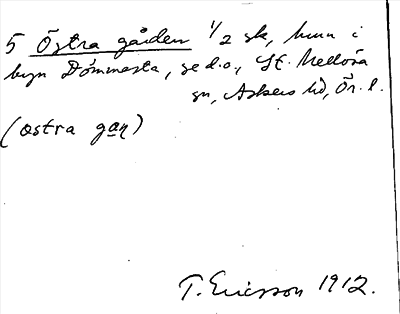 5 Östra gården 1/2 sk, hmn i
byn Dömmesta, se d.o., St. Mellösa
sn, Askers hd, Ör. l.
(östra gaɳ)
T. Ericsson 1912.